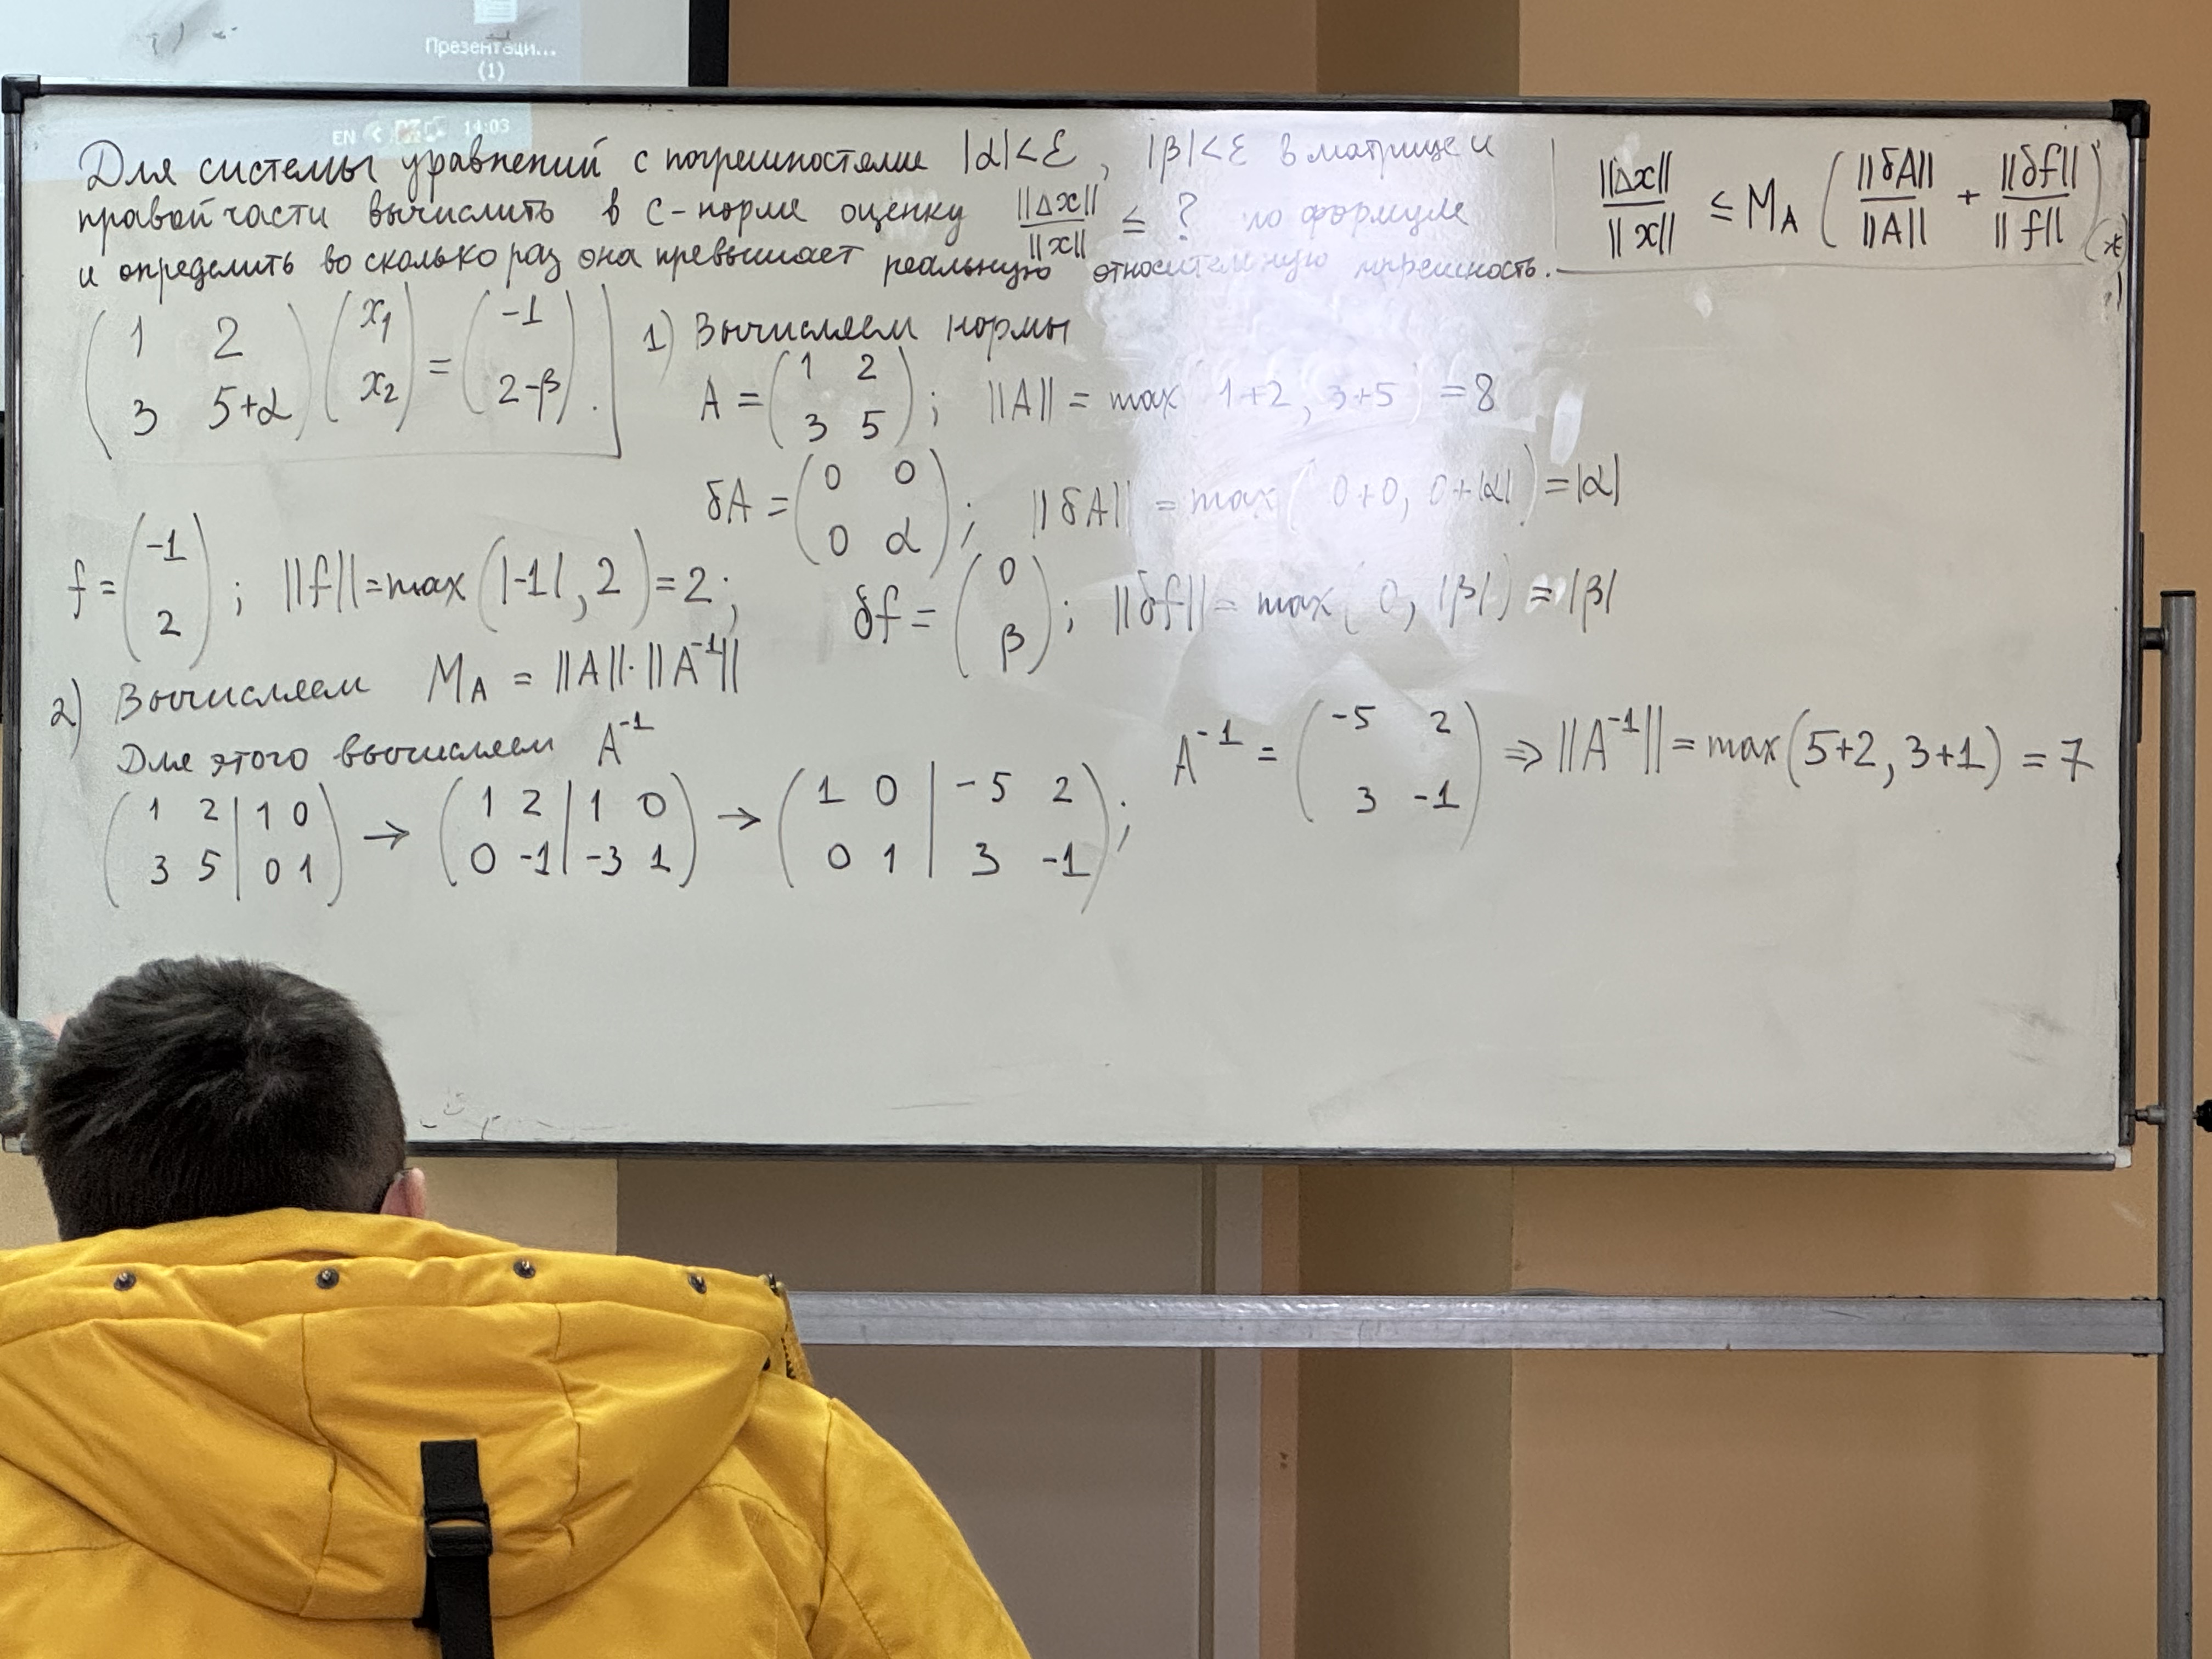 Презентаци...
(1)
EN 14:03
Для системы уравнений с погрешностями |α|<ε, |β|<ε в матрице и
правой части вычислить в C-норме оценку ||Δx||/||x|| ≤ ? по формуле
и определить во сколько раз она превышает реальную относительную погрешность.
||Δx||/||x|| ≤ M_A (||δA||/||A|| + ||δf||/||f||) (*)
(1 2; 3 5+α) (x₁; x₂) = (-1; 2-β).
1) Вычисляем нормы
A = (1 2; 3 5); ||A|| = max(1+2, 3+5) = 8
δA = (0 0; 0 α); ||δA|| = max(0+0, 0+|α|) = |α|
f = (-1; 2); ||f|| = max(|-1|, 2) = 2; δf = (0; β); ||δf|| = max(0, |β|) = |β|
2) Вычисляем M_A = ||A||·||A⁻¹||
Для этого вычисляем A⁻¹
(1 2 | 1 0; 3 5 | 0 1) → (1 2 | 1 0; 0 -1 | -3 1) → (1 0 | -5 2; 0 1 | 3 -1);
A⁻¹ = (-5 2; 3 -1) ⇒ ||A⁻¹|| = max(5+2, 3+1) = 7